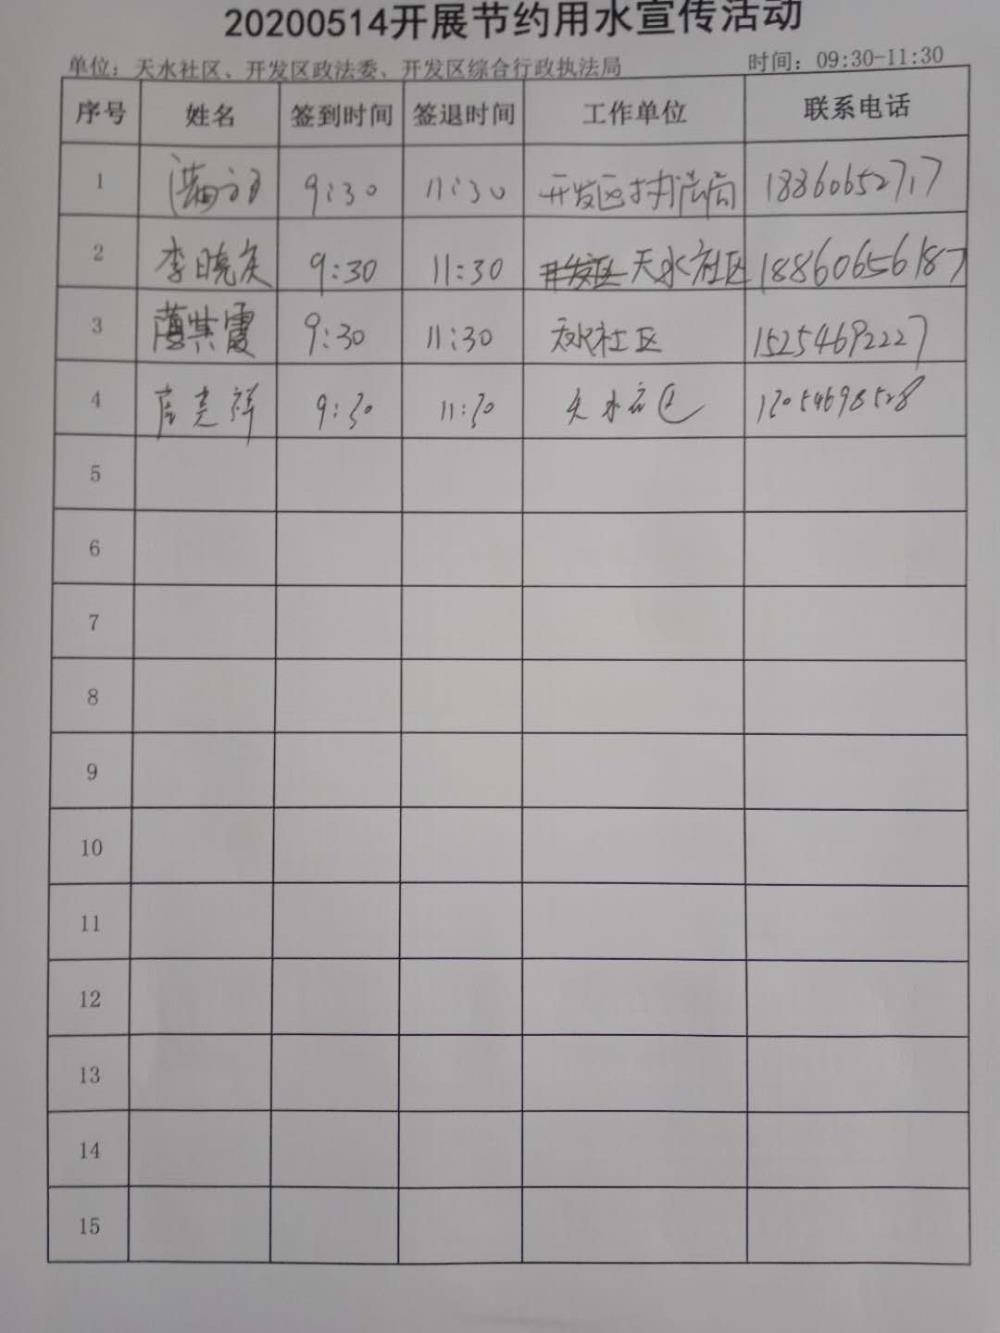 20200514开展节约用水宣传活动
单位：天水社区、开发区政法委、开发区综合行政执法局 时间：09:30-11:30
序号 姓名 签到时间 签退时间 工作单位 联系电话
1 9:30 11:30 开发区执法局 18860652717
2 李晓庆 9:30 11:30 天水社区 18860656187
3 薄其霞 9:30 11:30 天水社区 15254692227
4 9:30 11:30 天水社区
5
6
7
8
9
10
11
12
13
14
15